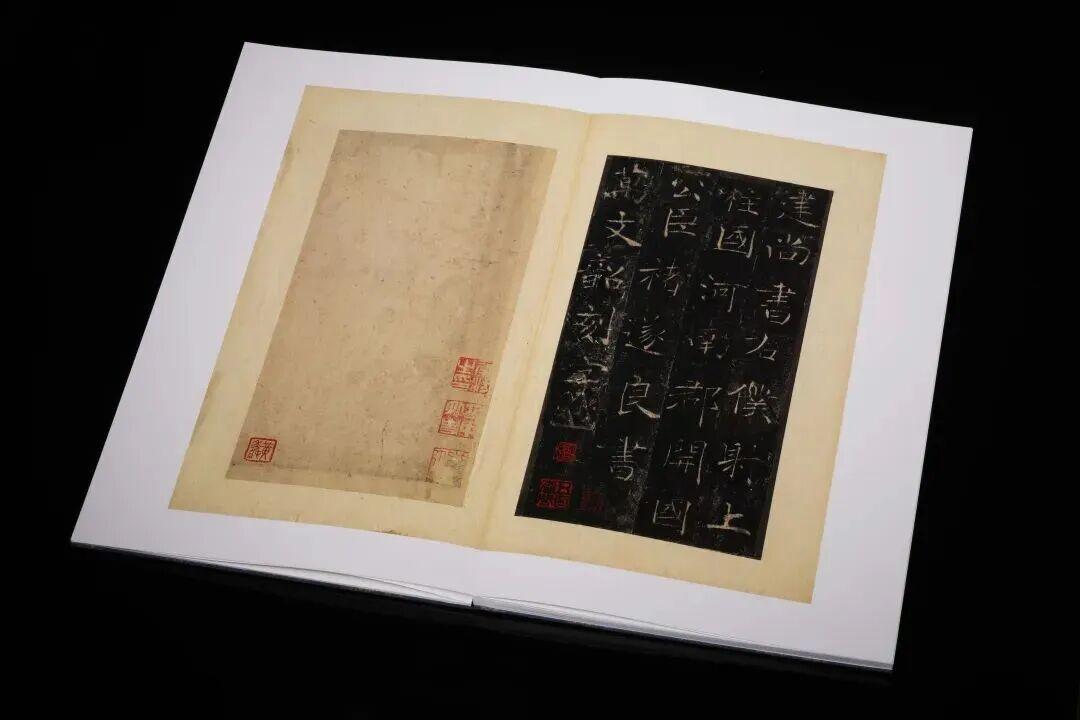 建尚書右僕射上
柱國河南郡開國
公臣褚遂良書
萬文韶刻字